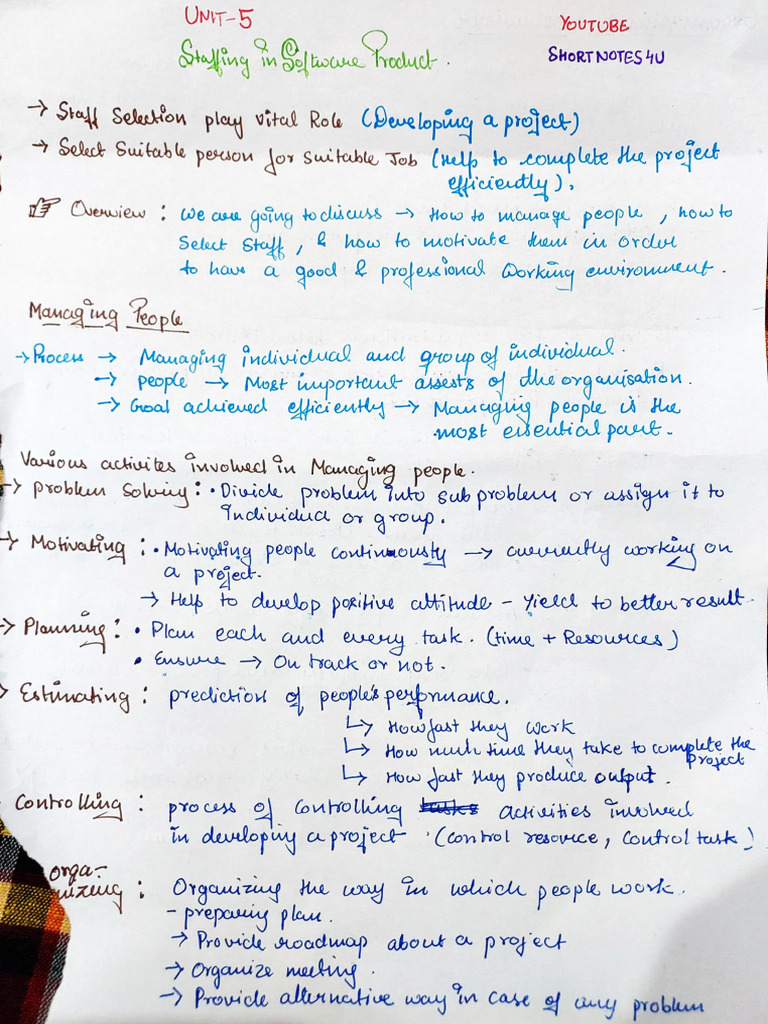 UNIT-5
YOUTUBE
Staffing in Software Product.
SHORTNOTES4U
→ Staff Selection play vital Role (Developing a project)
→ Select Suitable person for Suitable Job (Help to complete the project
efficiently).
Overview : we are going to discuss → How to manage people, how to
Select Staff, & how to motivate them in order
to have a good & professional working environment.
Managing People
→ Process → Managing individual and group of individual.
→ people → Most important assests of the organisation.
→ Goal achieved efficiently → Managing people is the
most essential part.
Various activites involved in Managing people.
→ problem Solving : • Divide problem into sub problem or assign it to
individual or group.
→ Motivating : • Motivating people continuously → currently working on
a project.
→ Help to develop positive attitude – yield to better result.
→ Planning : • Plan each and every task. (time + Resources)
• Ensure → On track or not.
→ Estimating : prediction of people's performance.
↳ How fast they work
↳ How much time they take to complete the
project
↳ How fast they produce output.
Controlling : process of controlling tasks activities involved
in developing a project (control resource, control task)
orga-
nizing : Organizing the way in which people work.
- preparing plan.
→ Provide roadmap about a project
→ Organize meeting.
→ Provide alternative way in case of any problem